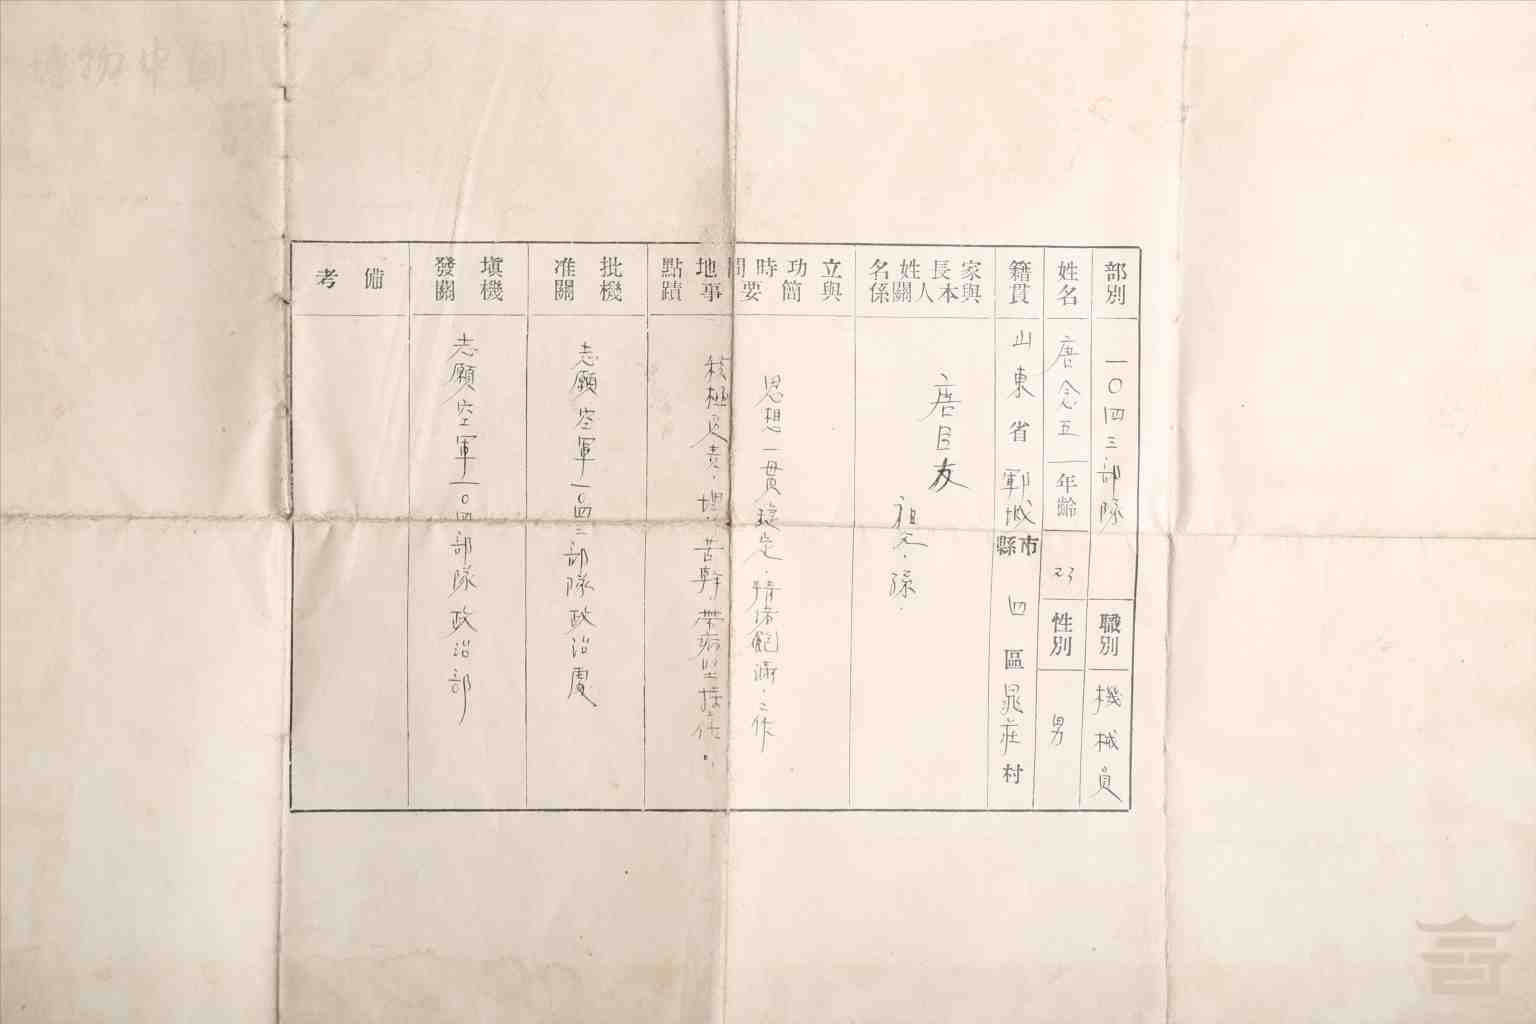 博物中國
部別
一〇四三部隊
職別
機械員
姓名
唐念五
年齡
23
性別
男
籍貫
山東省鄆城縣市四區晁莊村
家長姓名
與本人關係
唐臣友
祖父·孫·
立功時間地點
與簡要事蹟
思想一貫穩定·情緒飽滿·工作
積極負責·埋·苦幹·帶病堅持工作·
批准
機關
志願空軍一〇四三部隊政治處
填發
機關
志願空軍一〇四部隊政治部
備考